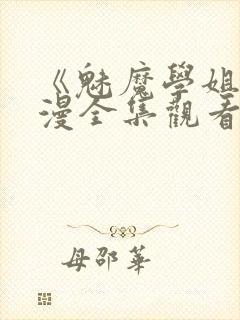 《魅魔學姐
漫全集觀看
母邵華